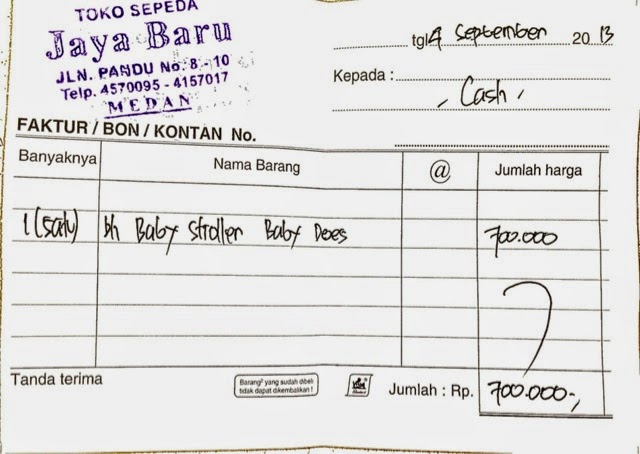 TOKO SEPEDA
Jaya Baru
JLN. PANDU No. 8 - 10
Telp. 4570095 - 4157017
MEDAN
tgl 4 September 20 13
Kepada :
, Cash ,
FAKTUR / BON / KONTAN No.
Banyaknya Nama Barang @ Jumlah harga
1 (satu) bh Baby Stroller Baby Does 700.000
Tanda terima
Barang² yang sudah dibeli
tidak dapat dikembalikan !
Jumlah : Rp. 700.000-,